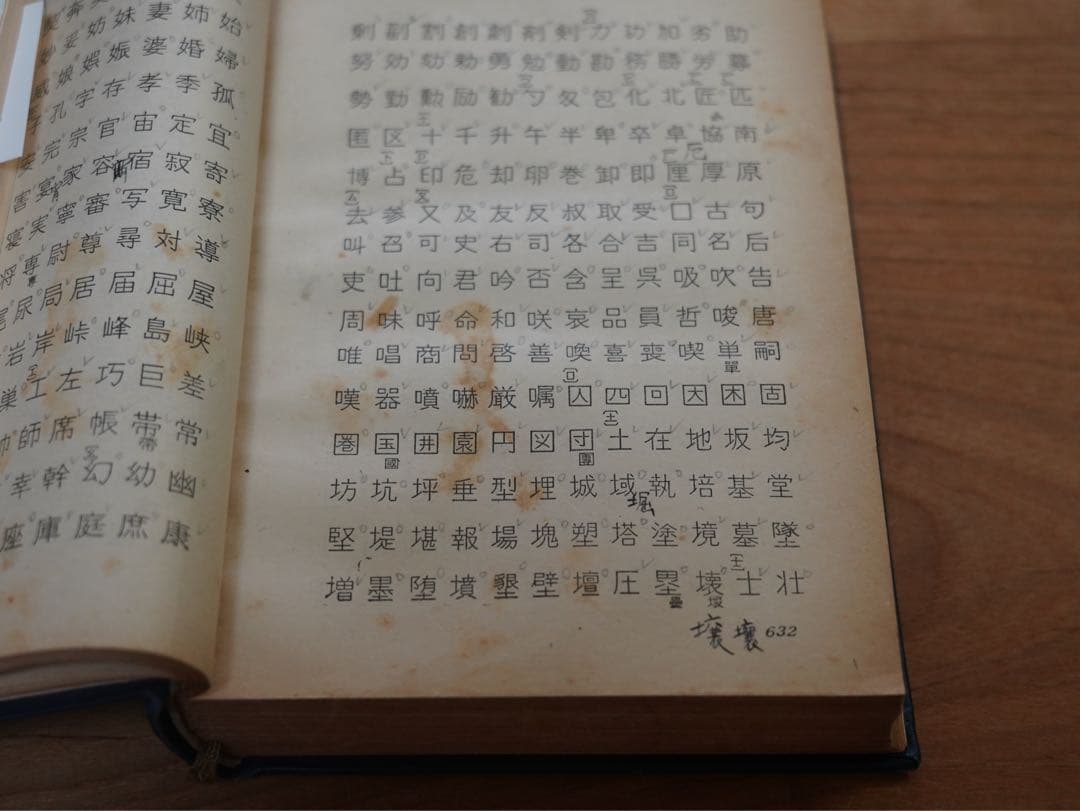 契 奔
妙 妥 妨 妹 妻 姉 始
威 娘 娯 娠 婆 婚 婦
子 孔 字 存 孝 季 孤
安 完 宗 官 宙 定 宜
害 宴 家 容 宿 寂 寄
寝 実 寧 審 写 寛 寮
将 専 尉 尊 尋 対 導
尾 尿 局 居 届 屈 屋
岩 岸 峠 峰 島 峡
巣 工 左 巧 巨 差
帥 師 席 帳 帯 常
幸 幹 幻 幼 幽
座 庫 庭 庶 康
剰 副 割 創 劇 剤 剣 力 功 加 劣 助
努 効 劾 勅 勇 勉 動 勘 務 勝 労 募
勢 勤 勲 励 勧 勹 匁 包 化 北 匠 匹
匿 区 十 千 升 午 半 卑 卒 卓 協 南
博 占 印 危 却 卵 巻 卸 即 厘 厚 原
去 参 又 及 友 反 叔 取 受 口 古 句
叫 召 可 史 右 司 各 合 吉 同 名 后
吏 吐 向 君 吟 否 含 呈 呉 吸 吹 告
周 味 呼 命 和 咲 哀 品 員 哲 唆 唐
唯 唱 商 問 啓 善 喚 喜 喪 喫 単 嗣
單
嘆 器 噴 嚇 厳 嘱 囚 四 回 因 困 固
圏 国 囲 園 円 図 団 土 在 地 坂 均
國 團
坊 坑 坪 垂 型 埋 城 域 執 培 基 堂
堀
堅 堤 堪 報 場 塊 塑 塔 塗 境 墓 墜
増 墨 堕 墳 墾 壁 壇 圧 塁 壊 士 壮
壘
壌 壞 632